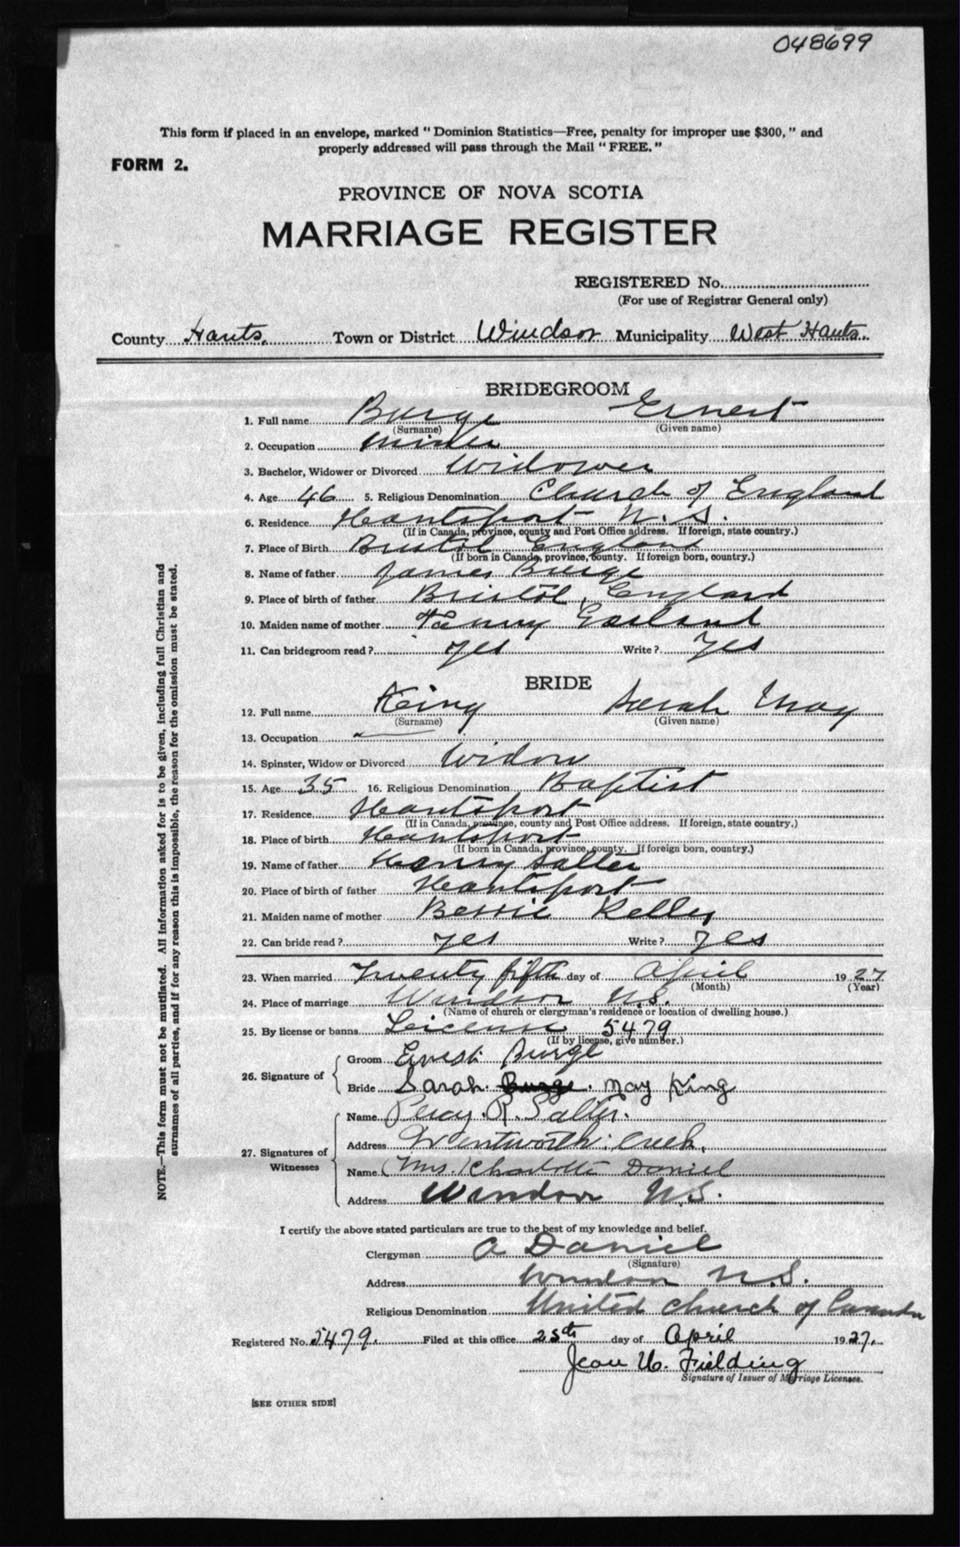 048699
This form if placed in an envelope, marked "Dominion Statistics—Free, penalty for improper use $300," and
properly addressed will pass through the Mail "FREE."
FORM 2.
PROVINCE OF NOVA SCOTIA
MARRIAGE REGISTER
REGISTERED No.
(For use of Registrar General only)
County Hants. Town or District Windsor Municipality West Hants.
BRIDEGROOM
1. Full name Burge Ernest
(Surname) (Given name)
2. Occupation
3. Bachelor, Widower or Divorced Widower
4. Age 46 5. Religious Denomination Church of England
6. Residence Hantsport N.S.
(If in Canada, province, county and Post Office address. If foreign, state country.)
7. Place of Birth Bristol England
(If born in Canada, province, county. If foreign born, country.)
8. Name of father James Burge
9. Place of birth of father Bristol, England
10. Maiden name of mother
11. Can bridegroom read? yes Write? Yes
BRIDE
12. Full name King Sarah May
(Surname) (Given name)
13. Occupation
14. Spinster, Widow or Divorced Widow
15. Age 35 16. Religious Denomination Baptist
17. Residence Hantsport
(If in Canada, province, county and Post Office address. If foreign, state country.)
18. Place of birth Hantsport
(If born in Canada, province, county. If foreign born, country.)
19. Name of father Henry Salter
20. Place of birth of father Hantsport
21. Maiden name of mother Bessie Kelley
22. Can bride read? yes Write? Yes
23. When married Twenty fifth day of April 1927
(Month) (Year)
24. Place of marriage Windsor N.S.
(Name of church or clergyman's residence or location of dwelling house.)
25. By license or banns License 5479
(If by license, give number.)
26. Signature of
Groom Ernest Burge
Bride Sarah Burge. May King
27. Signatures of Witnesses
Name Percy R. Salter.
Address Wentworth Creek,
Name (Mrs.) Charlotte Daniel
Address Windsor N.S.
I certify the above stated particulars are true to the best of my knowledge and belief.
Clergyman A Daniel
(Signature)
Address Windsor N.S.
Religious Denomination United Church of Canada
Registered No. 5479. Filed at this office 25th day of April 1927.
Jean U. Fielding
Signature of Issuer of Marriage Licenses.
[SEE OTHER SIDE]
NOTE.—This form must not be mutilated. All information asked for is to be given, including full Christian and
surnames of all parties, and if for any reason this is impossible, the reason for the omission must be stated.